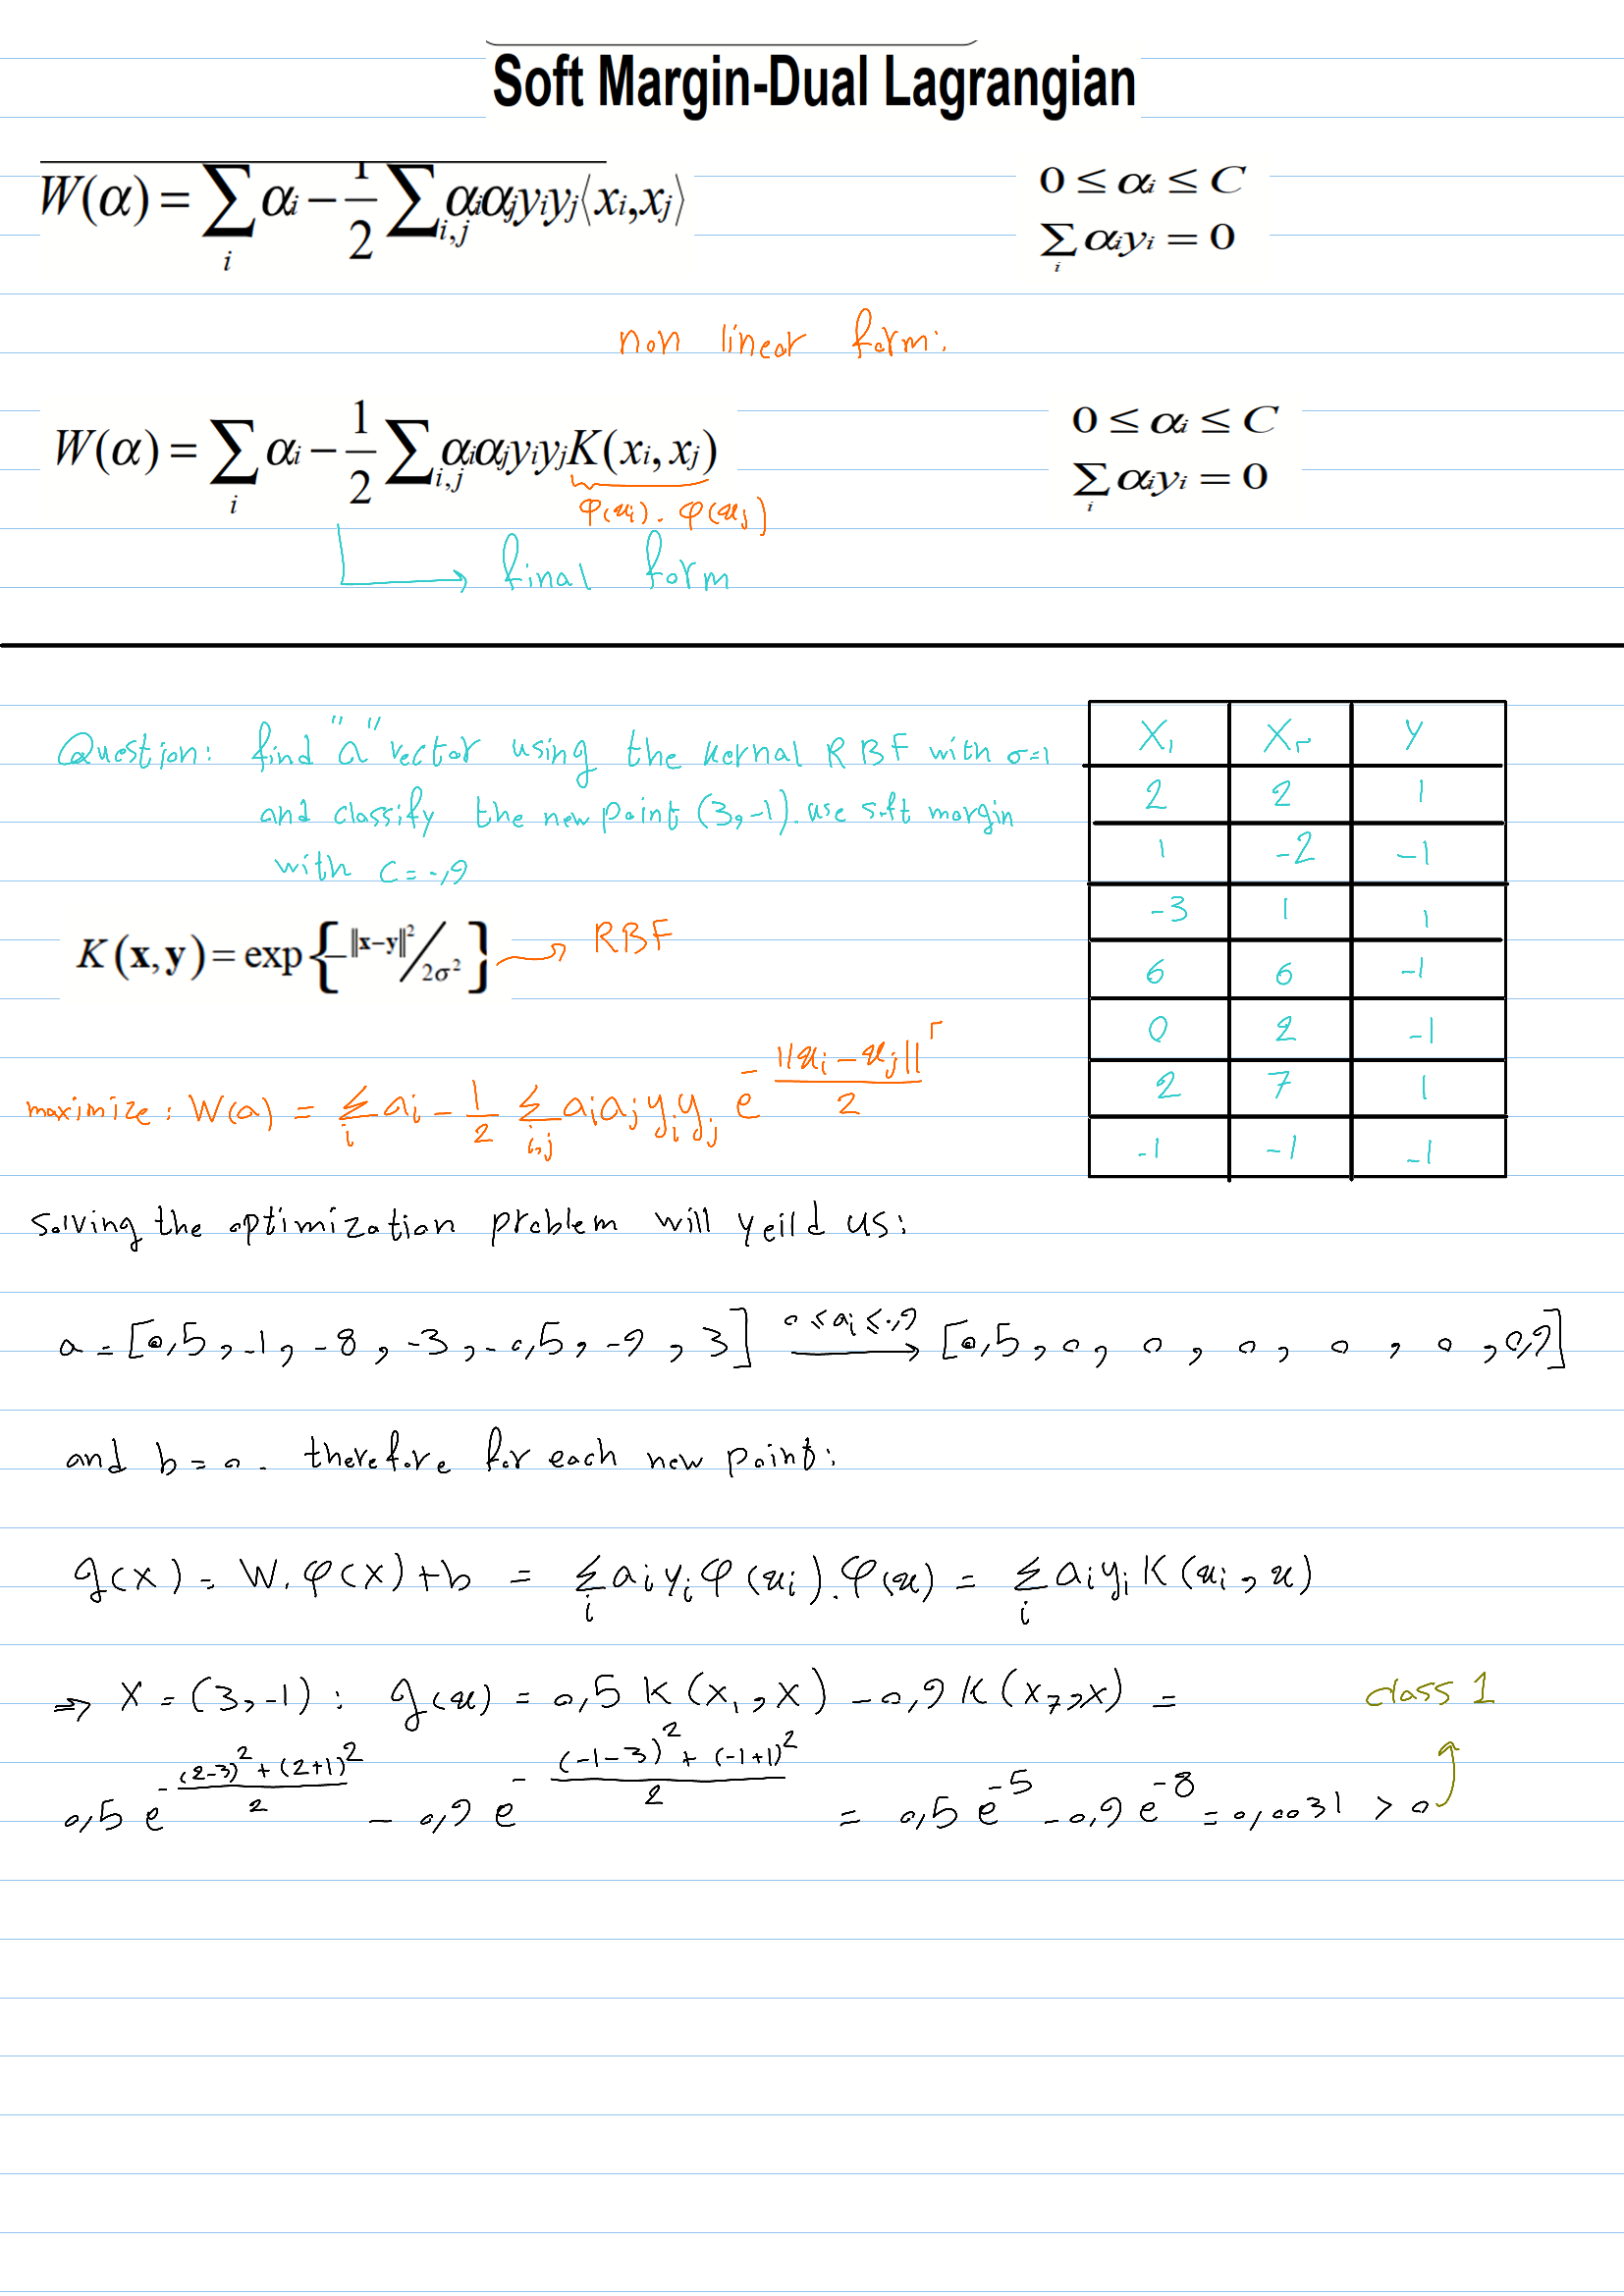 Soft Margin-Dual Lagrangian
W(α) = ∑_i αi − 1/2 ∑_{i,j} αiαjyiyj⟨xi,xj⟩
0 ≤ αi ≤ C
∑_i αiyi = 0
non linear form:
W(α) = ∑_i αi − 1/2 ∑_{i,j} αiαjyiyjK(xi,xj)
0 ≤ αi ≤ C
∑_i αiyi = 0
φ(xi). φ(xj)
→ final form
Question: find "a" vector using the kernal RBF with σ=1
and classify the new point (3,-1). use soft margin
with C = 0,9
X₁ X₂ Y
2 2 1
1 -2 -1
-3 1 1
6 6 -1
0 2 -1
2 7 1
-1 -1 -1
K(x,y) = exp{−‖x−y‖²/2σ²} → RBF
maximize: W(a) = ∑_i ai − 1/2 ∑_{i,j} aiajyiyj e^{−||xi−xj||²/2}
solving the optimization problem will yeild us:
a = [0,5 , -1, -8, -3, -0,5, -9, 3] 0≤ai≤0,9 → [0,5, 0, 0, 0, 0, 0, 0,9]
and b = 0. therefore for each new point:
g(x) = W.φ(x)+b = ∑_i aiyiφ(xi).φ(x) = ∑_i aiyiK(xi,x)
⇒ X = (3,-1): g(x) = 0,5 K(x₁,x) − 0,9 K(x₇,x) =
class 1
0,5 e^{−((2-3)²+(2+1)²)/2} − 0,9 e^{−((-1-3)²+(-1+1)²)/2} = 0,5 e^{-5} − 0,9 e^{-8} = 0,0031 > 0